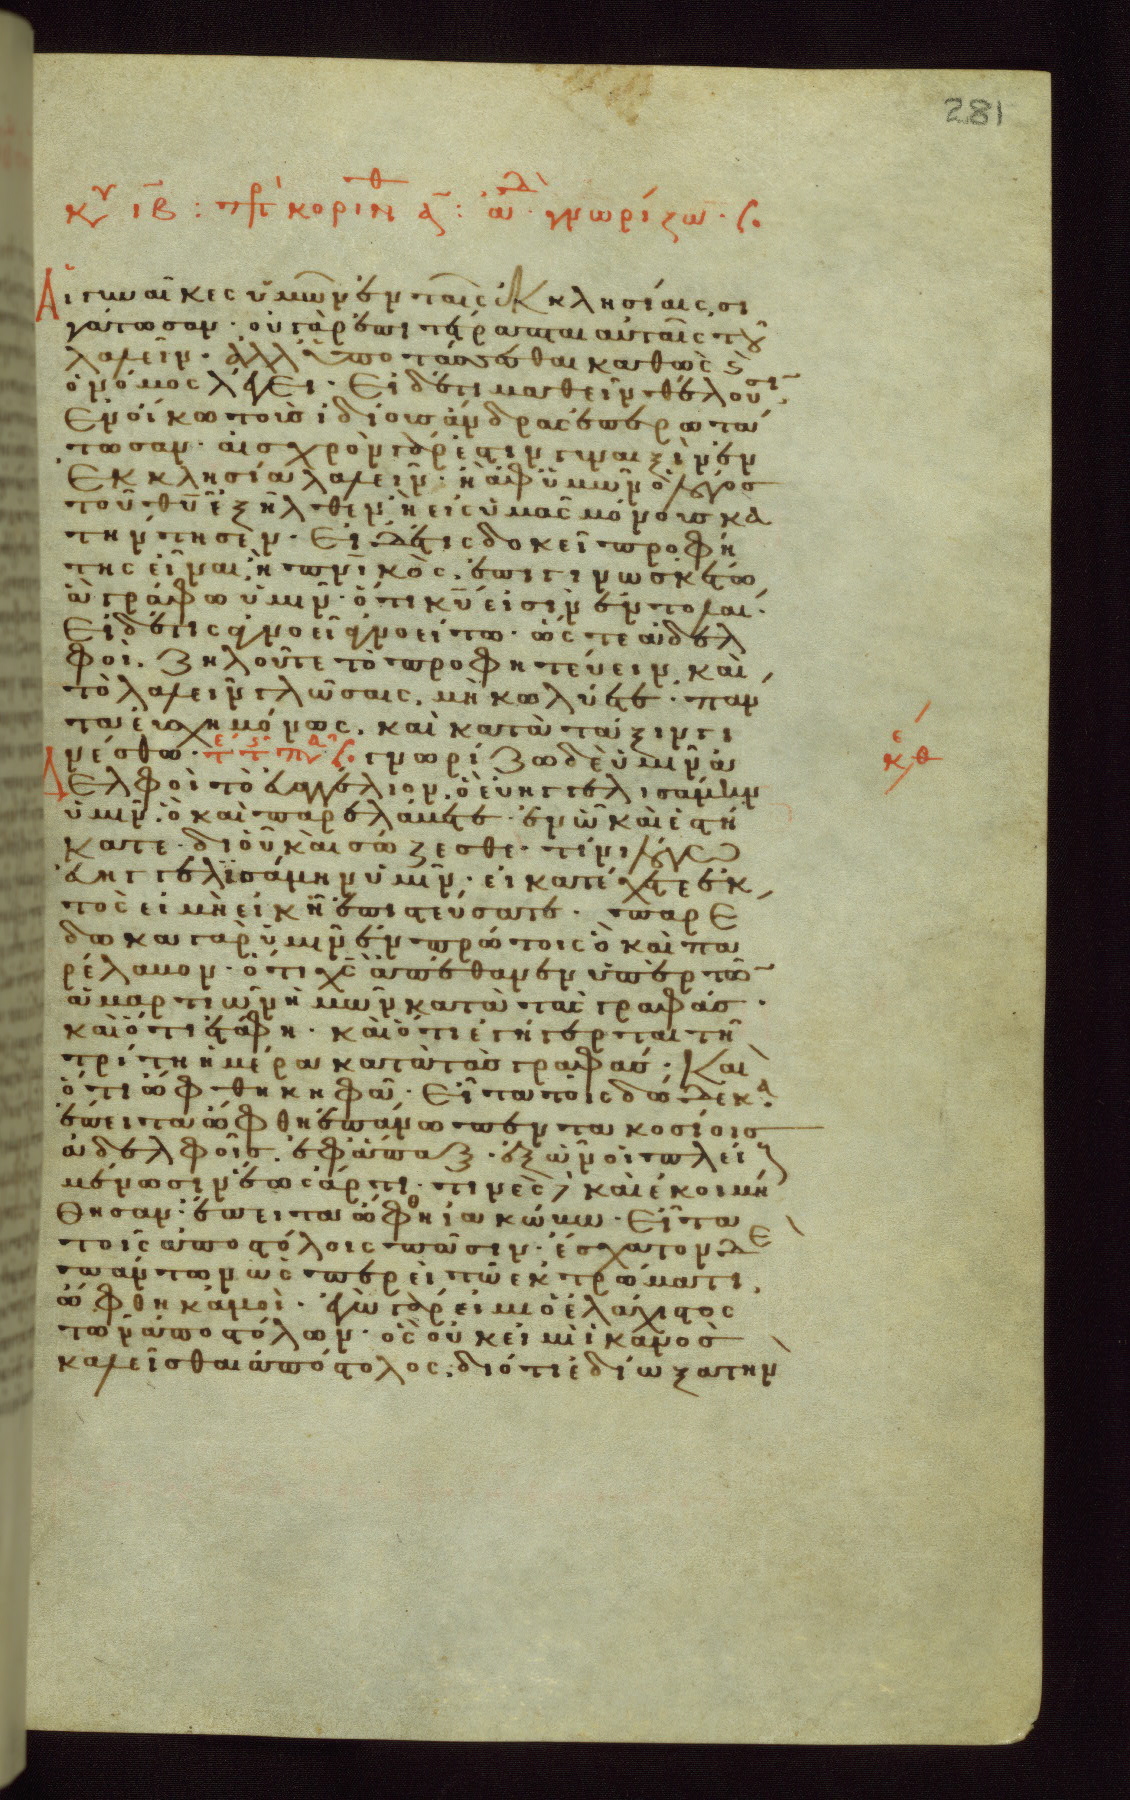 281
κυ ιβ : πρ κορινθ α : αδ γνωρίζω
Αἱ γυναῖκες ὑμῶν ἐν ταῖς ἐκκλησίαις, σι
γάτωσαν · οὐ γὰρ ἐπιτέτραπται αὐταῖς τοῦ
λαλεῖν · ἀλλ' ὑποτάσσεσθαι καθὼς
ὁ νόμος λέγει · Εἰ δέ τι μαθεῖν θέλουσιν
Ἐν οἴκω τοὺς ἰδίους ἄνδρας ἐπερωτά
τωσαν · αἰσχρὸν γάρ ἐστιν γυναιξὶν ἐν
Ἐκκλησία λαλεῖν · ἢ ἀφ' ὑμῶν ὁ λόγος
τοῦ θυ ἐξῆλθεν ἢ εἰς ὑμᾶς μόνους κα
τήντησεν · Εἴ τις δοκεῖ προφή
της εἶναι, ἢ πνικὸς, ἐπιγινωσκέτω
ἃ γράφω ὑμῖν · ὅτι κυ εἰσὶν ἐντολαί ·
Εἰ δέ τις ἀγνοεῖ ἀγνοείτω · ὥστε ἀδελ
φοί, ζηλοῦτε τὸ προφητεύειν, καὶ
τὸ λαλεῖν γλώσσαις, μὴ κωλύετε · πάν
τα εὐσχημόνως, καὶ κατὰ τάξιν γι
νέσθω · γνωρίζω δὲ ὑμῖν ἀ
δελφοὶ τὸ εὐαγγέλιον, ὃ εὐηγγελισάμην
ὑμῖν, ὃ καὶ παρελάβετε · ἐν ᾧ καὶ ἑστή
κατε · δι' οὗ καὶ σώζεσθε · τίνι λόγω
εὐηγγελισάμην ὑμῖν · εἰ κατέχετε ἐκ
τὸς εἰ μὴ εἰκῆ ἐπιστεύσατε · παρέ
δωκα γὰρ ὑμῖν ἐν πρώτοις ὃ καὶ πα
ρέλαβον · ὅτι χς ἀπέθανεν ὑπὲρ τῶν
ἁμαρτιῶν ἡμῶν κατὰ τὰς γραφάς ·
καὶ ὅτι ἐτάφη · καὶ ὅτι ἐγήγερται τῆ
τρίτη ἡμέρα κατὰ τὰς γραφάς · Καὶ
ὅτι ὤφθη κηφᾶ · Εἶτα τοῖς δώδεκα
ἔπειτα ὤφθη ἐπάνω πεντακοσίοις
ἀδελφοῖς, ἐφάπαξ · ἐξ ὧν οἱ πλείους
μένωσιν ἕως ἄρτι · τινὲς καὶ ἐκοιμή
θησαν · ἔπειτα ὤφθη ἰακώβω · Εἶτα
τοῖς ἀποστόλοις πᾶσιν · ἔσχατον δὲ
πάντων ὡς περεὶ τῶ ἐκτρώματι,
ὤφθη κἀμοί · ἐγὼ γάρ εἰμι ὁ ἐλάχιστος
τῶν ἀποστόλων · ὃς οὐκ εἰμὶ ἱκανὸς
καλεῖσθαι ἀπόστολος, διότι ἐδίωξα τὴν